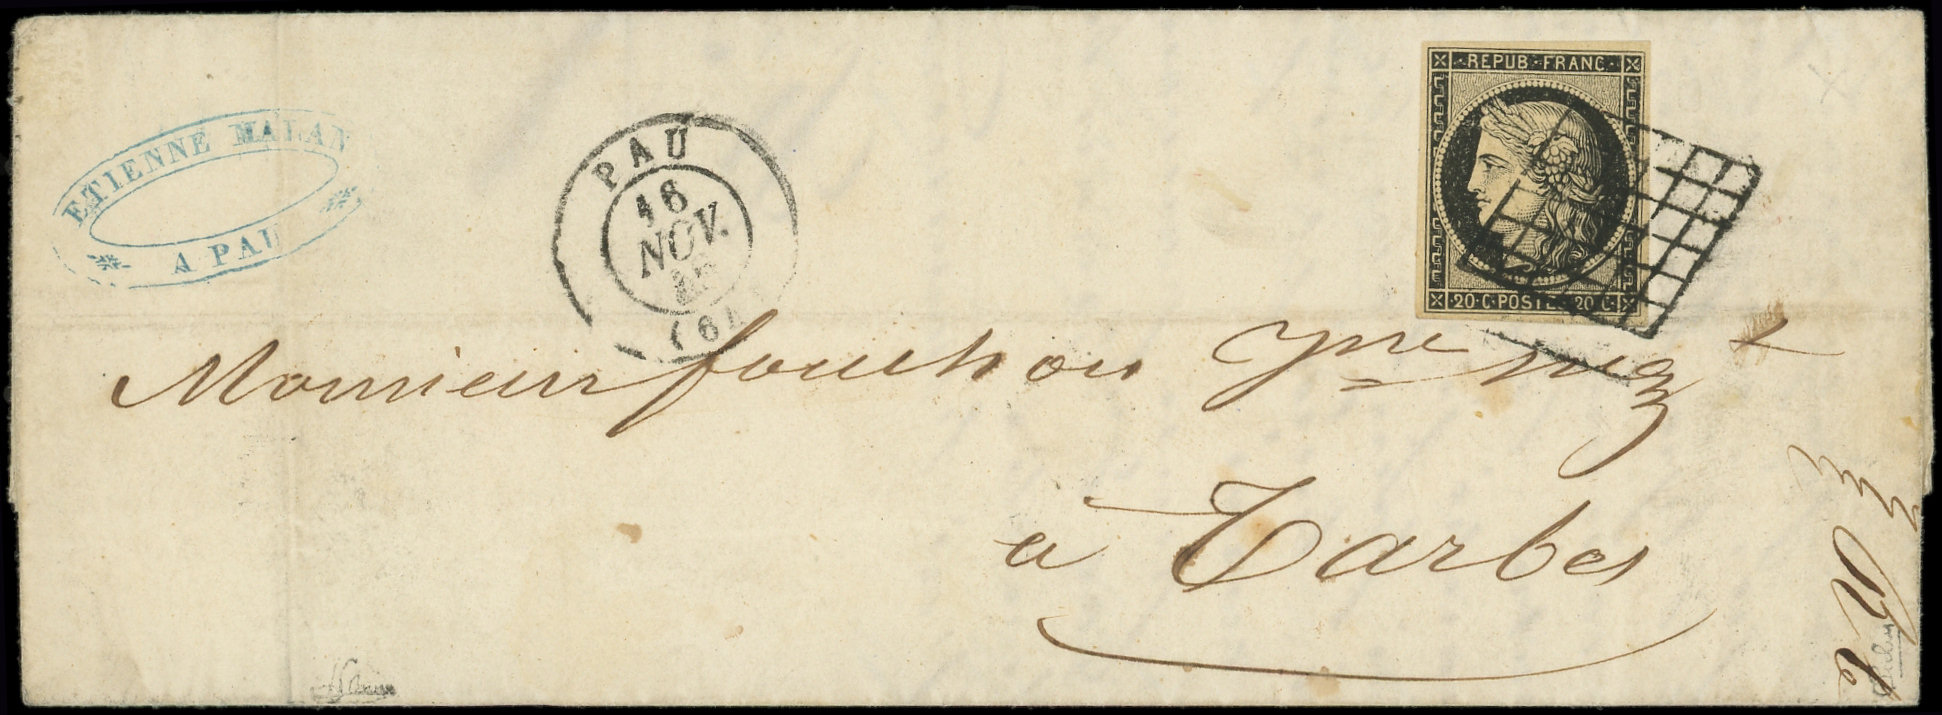 ETIENNE MALAN
A PAU
PAU
16
NOV.
(64
REPUB-FRANC
20·C·POSTE·20·C·
Monsieur fouchou Jne
à Tarbes